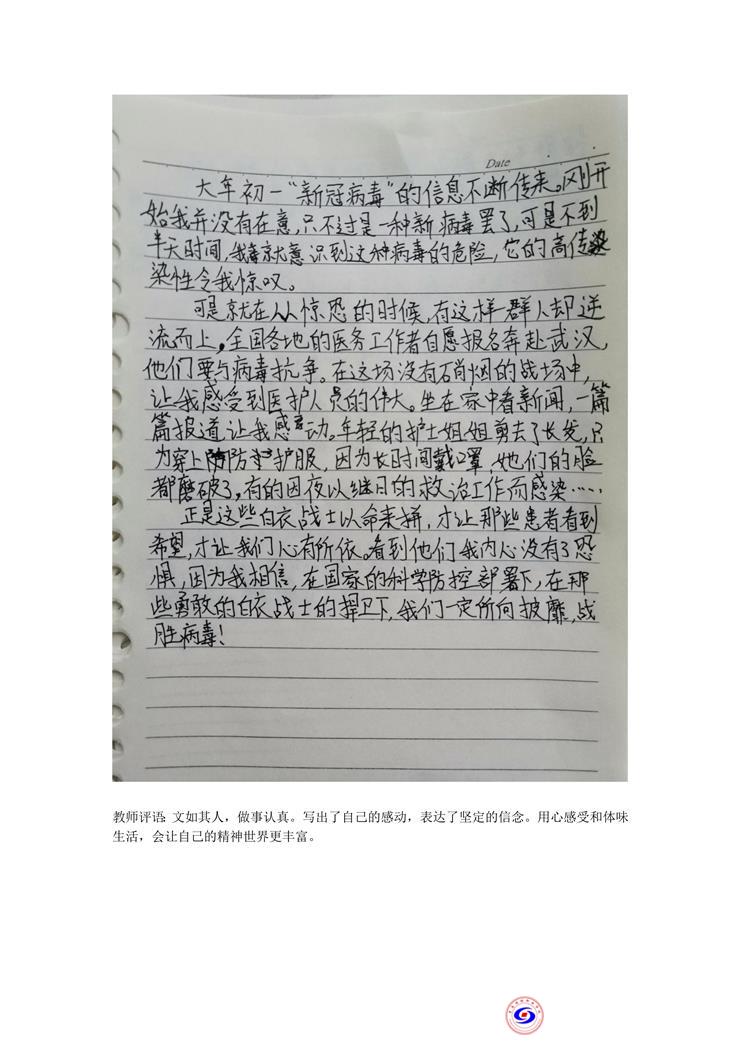 Date
大年初一“新冠病毒”的信息不断传来。刚开
始我并没有在意,只不过是一种新病毒罢了,可是不到
半天时间,我就意识到这种病毒的危险,它的高传
染性令我惊叹。
可是就在人人惊恐的时候,有这样一群人却逆
流而上。全国各地的医务工作者自愿报名奔赴武汉,
他们要与病毒抗争。在这场没有硝烟的战场中,
让我感受到医护人员的伟大。坐在家中看新闻,一篇
篇报道让我感动。年轻的护士姐姐剪去了长发,只
为穿上防护服,因为长时间戴口罩,她们的脸
都磨破了,有的因夜以继日的救治工作而感染……
正是这些白衣战士以命来拼,才让那些患者看到
希望,才让我们心有所依。看到他们我内心没有了恐
惧,因为我相信,在国家的科学防控部署下,在那
些勇敢的白衣战士的捍卫下,我们一定所向披靡,战
胜病毒!
教师评语:文如其人,做事认真。写出了自己的感动,表达了坚定的信念。用心感受和体味
生活,会让自己的精神世界更丰富。